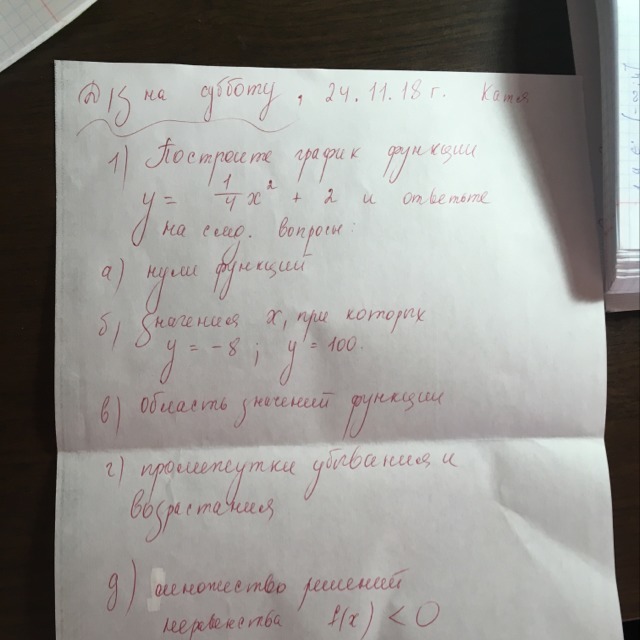 Д/З на субботу, 24.11.18 г. Катя
1) Постройте график функции
y = 1/4 x² + 2 и ответьте
на след. вопросы:
а) нули функций
б) Значения x, при которых
y = -8; y = 100.
в) Область значений функции
г) промежутки убывания и
возрастания
д) множество решений
неравенства f(x) < 0